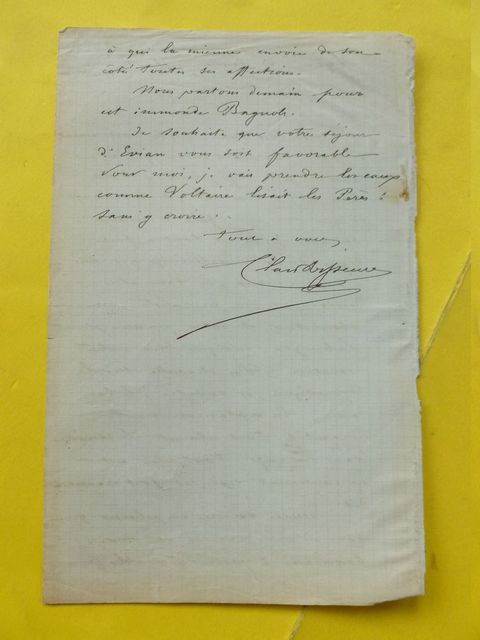 à qui la mienne envoie de son
côté toutes ses affections.
Nous partons demain pour
cet immonde Bagnols.
Je souhaite que votre séjour
d'Evian vous soit favorable
Pour moi, je vais prendre les eaux
comme Voltaire lisait les Pères :
sans y croire.
Tout à vous,